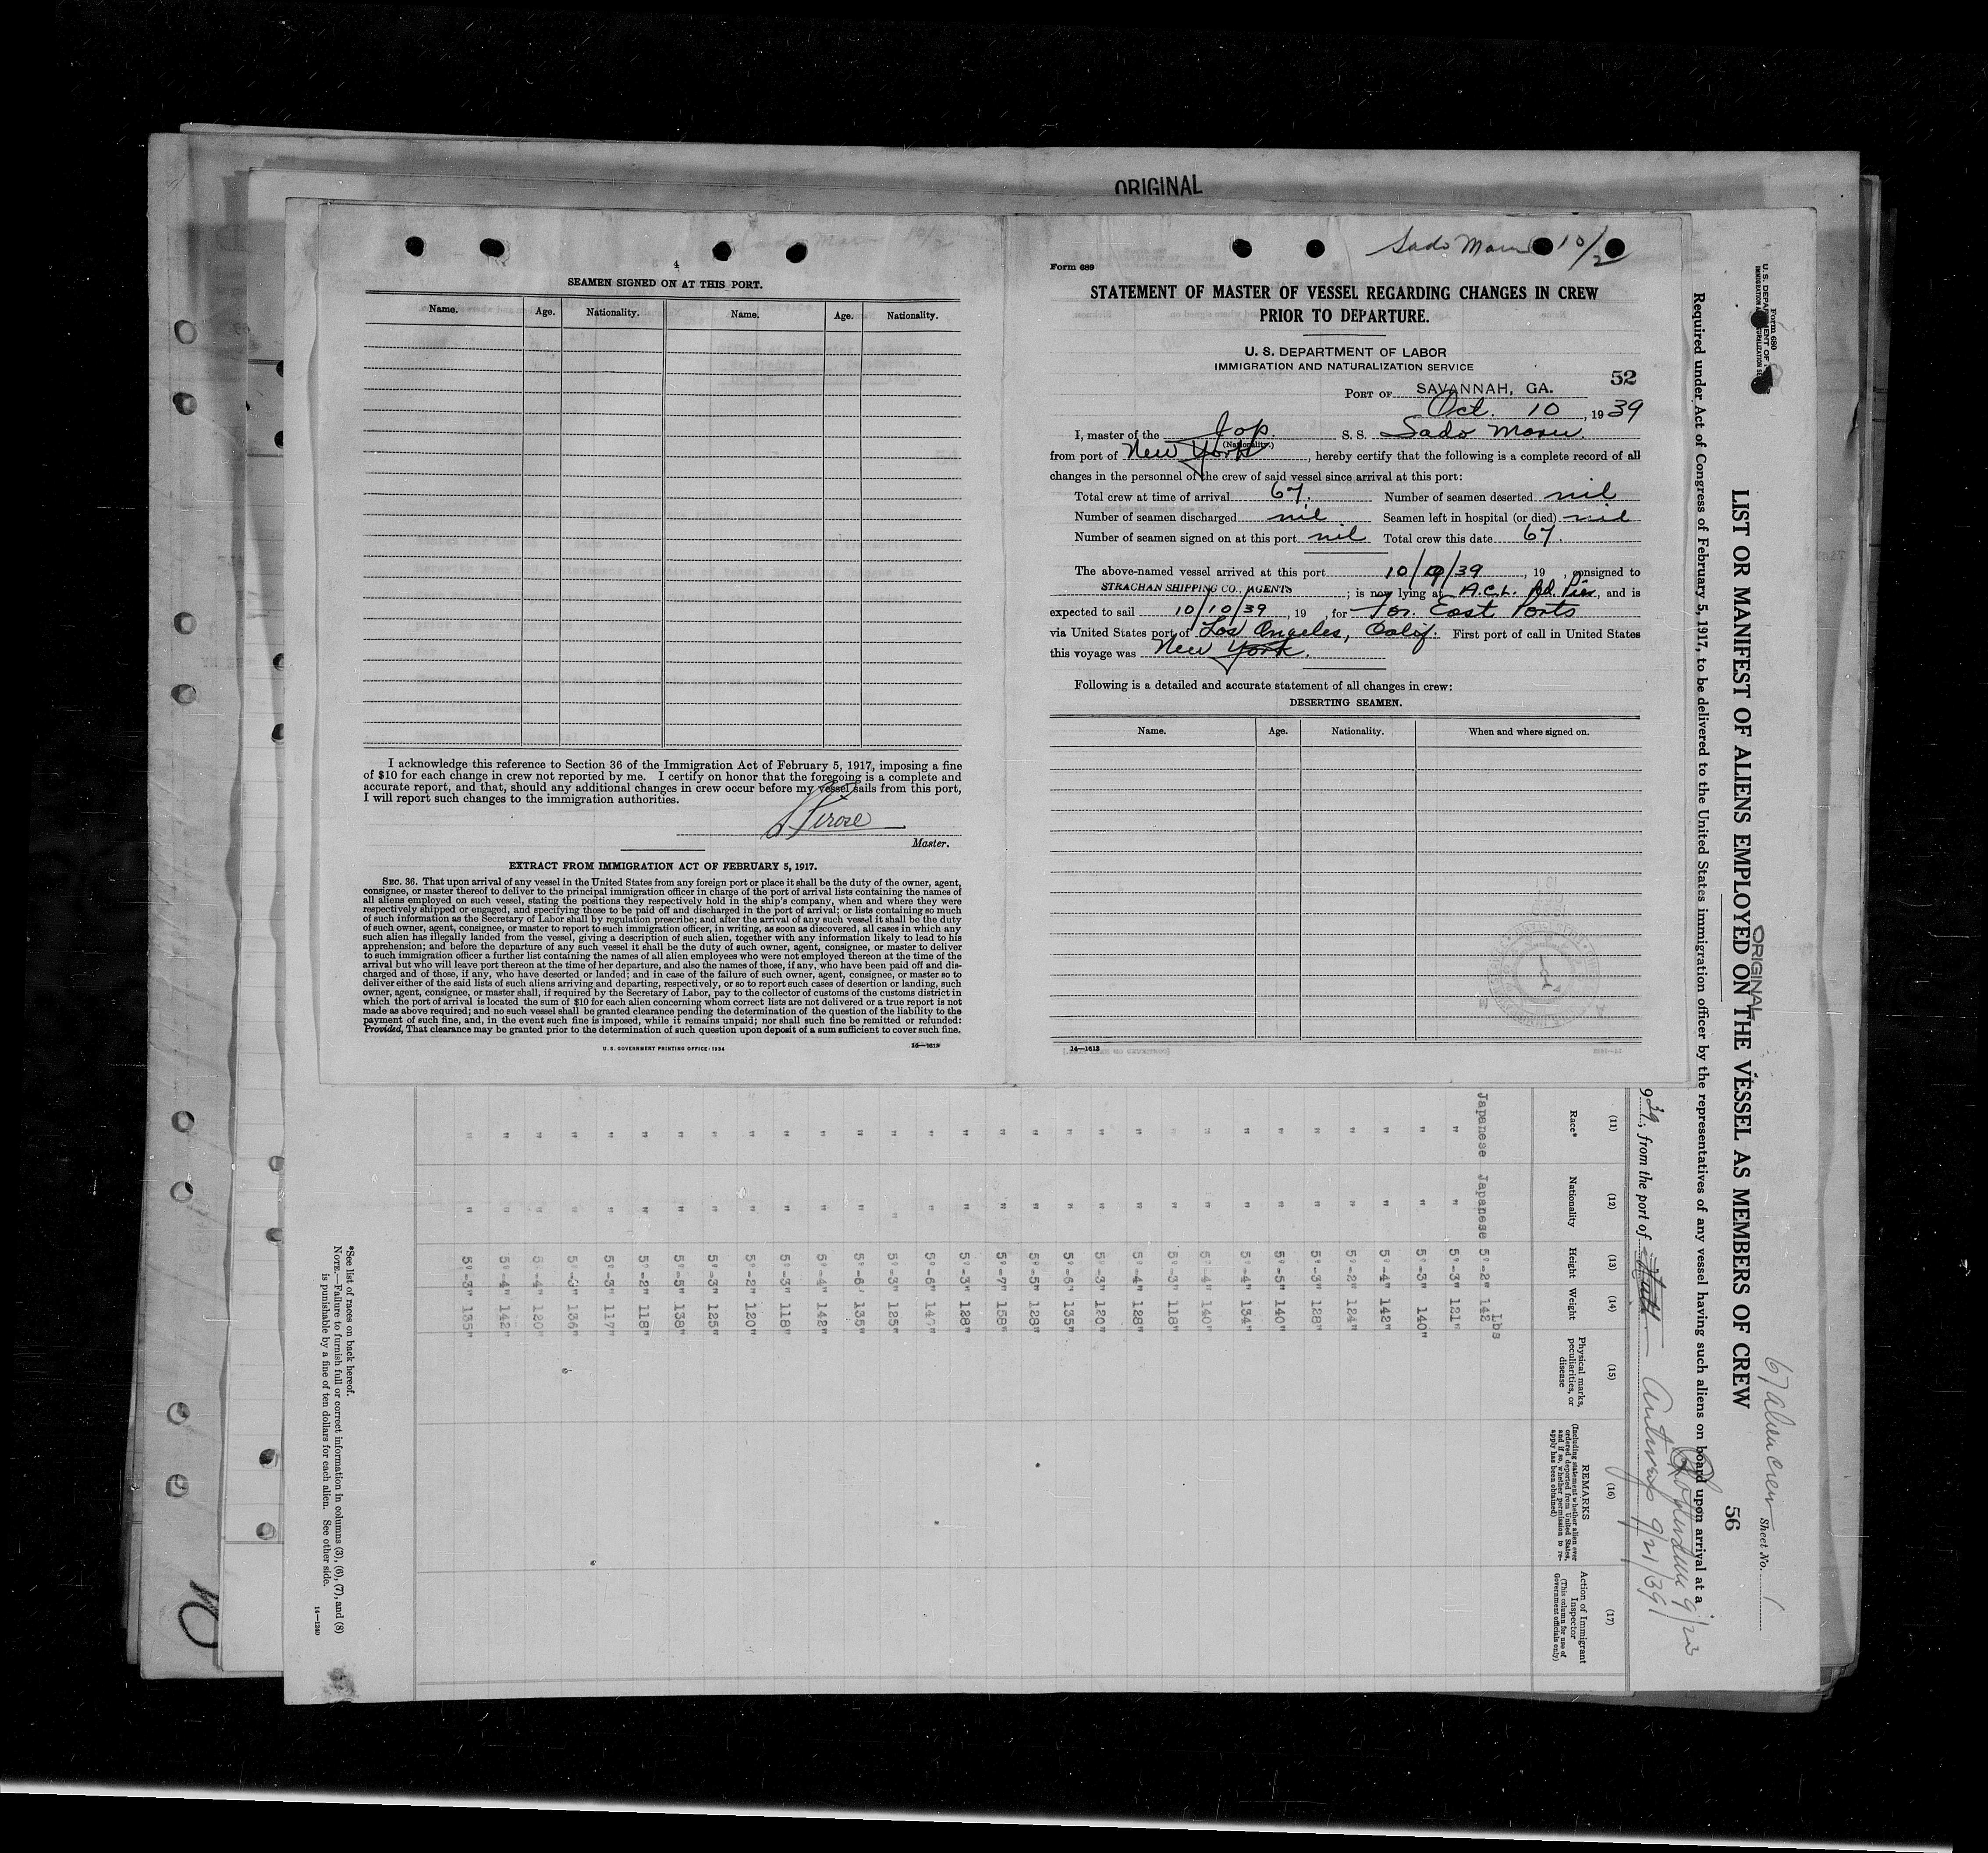 ORIGINAL
4
SEAMEN SIGNED ON AT THIS PORT.
Name. Age. Nationality. Name. Age. Nationality.
I acknowledge this reference to Section 36 of the Immigration Act of February 5, 1917, imposing a fine
of $10 for each change in crew not reported by me. I certify on honor that the foregoing is a complete and
accurate report, and that, should any additional changes in crew occur before my vessel sails from this port,
I will report such changes to the immigration authorities.
Master.
EXTRACT FROM IMMIGRATION ACT OF FEBRUARY 5, 1917.
SEC. 36. That upon arrival of any vessel in the United States from any foreign port or place it shall be the duty of the owner, agent,
consignee, or master thereof to deliver to the principal immigration officer in charge of the port of arrival lists containing the names of
all aliens employed on such vessel, stating the positions they respectively hold in the ship's company, when and where they were
respectively shipped or engaged, and specifying those to be paid off and discharged in the port of arrival; or lists containing so much
of such information as the Secretary of Labor shall by regulation prescribe; and after the arrival of any such vessel it shall be the duty
of such owner, agent, consignee, or master to report to such immigration officer, in writing, as soon as discovered, all cases in which any
such alien has illegally landed from the vessel, giving a description of such alien, together with any information likely to lead to his
apprehension; and before the departure of any such vessel it shall be the duty of such owner, agent, consignee, or master to deliver
to such immigration officer a further list containing the names of all alien employees who were not employed thereon at the time of the
arrival but who will leave port thereon at the time of her departure, and also the names of those, if any, who have been paid off and dis-
charged and of those, if any, who have deserted or landed; and in case of the failure of such owner, agent, consignee, or master so to
deliver either of the said lists of such aliens arriving and departing, respectively, or so to report such cases of desertion or landing, such
owner, agent, consignee, or master shall, if required by the Secretary of Labor, pay to the collector of customs of the customs district in
which the port of arrival is located the sum of $10 for each alien concerning whom correct lists are not delivered or a true report is not
made as above required; and no such vessel shall be granted clearance pending the determination of the question of the liability to the
payment of such fine, and, in the event such fine is imposed, while it remains unpaid; nor shall such fine be remitted or refunded:
Provided, That clearance may be granted prior to the determination of such question upon deposit of a sum sufficient to cover such fine.
U. S. GOVERNMENT PRINTING OFFICE: 1934 14—1613
Sado Maru 10/2
Form 689
STATEMENT OF MASTER OF VESSEL REGARDING CHANGES IN CREW
PRIOR TO DEPARTURE.
U. S. DEPARTMENT OF LABOR
IMMIGRATION AND NATURALIZATION SERVICE
52
PORT OF SAVANNAH, GA.
Oct. 10, 1939
I, master of the Jap. S. S. Sado Maru.
(Nationality.)
from port of New York, hereby certify that the following is a complete record of all
changes in the personnel of the crew of said vessel since arrival at this port:
Total crew at time of arrival 67. Number of seamen deserted nil
Number of seamen discharged nil Seamen left in hospital (or died) nil
Number of seamen signed on at this port nil Total crew this date 67.
The above-named vessel arrived at this port 10/ /39, 19 , consigned to
STRACHAN SHIPPING CO., AGENTS; is now lying at A.C.L. Rd. Pier, and is
expected to sail 10/10/39, 19 , for Far East Ports
via United States port of Los Angeles, Calif. First port of call in United States
this voyage was New York.
Following is a detailed and accurate statement of all changes in crew:
DESERTING SEAMEN.
Name. Age. Nationality. When and where signed on.
14—1613
Form 680
U. S. DEPARTMENT OF
67 alien crew Sheet No. 1
ORIGINAL
LIST OR MANIFEST OF ALIENS EMPLOYED ON THE VESSEL AS MEMBERS OF CREW 56
Required under Act of Congress of February 5, 1917, to be delivered to the United States immigration officer by the representatives of any vessel having such aliens on board upon arrival at a
Rotterdam 9/23
939, from the port of Antwerp 9/21/39
(11) (12) (13) (14) (15) (16) (17)
Race* Nationality Height Weight Physical marks, peculiarities, or disease
REMARKS
(Including statement whether alien ever ordered deported from United States, and if so, whether permission to reapply has been obtained)
Action of Immigrant Inspector
(This column for use of Government officials only)
Lbs
Japanese Japanese 5'-2" 142
" " 5'-3" 121"
" " 5'-3" 140"
" " 5'-4" 142"
" " 5'-2" 124"
" " 5'-3" 128"
" " 5'-5" 140"
" " 5'-4" 134"
" " 5'-4" 140"
" " 5'-3" 118"
" " 5'-4" 128"
" " 5'-3" 120"
" " 5'-6" 135"
" " 5'-5" 128"
" " 5'-7" 158"
" " 5'-3" 128"
" " 5'-6" 147"
" " 5'-3" 125"
" " 5'-6" 135"
" " 5'-4" 142"
" " 5'-3" 118"
" " 5'-2" 120"
" " 5'-3" 125"
" " 5'-5" 138"
" " 5'-2" 118"
" " 5'-3" 117"
" " 134"
" " 120"
" " 5'-4" 142"
" " 5'-3" 135"
*See list of races on back hereof.
NOTE.—Failure to furnish full or correct information in columns (3), (6), (7), and (8)
is punishable by a fine of ten dollars for each alien. See other side.
14—1240